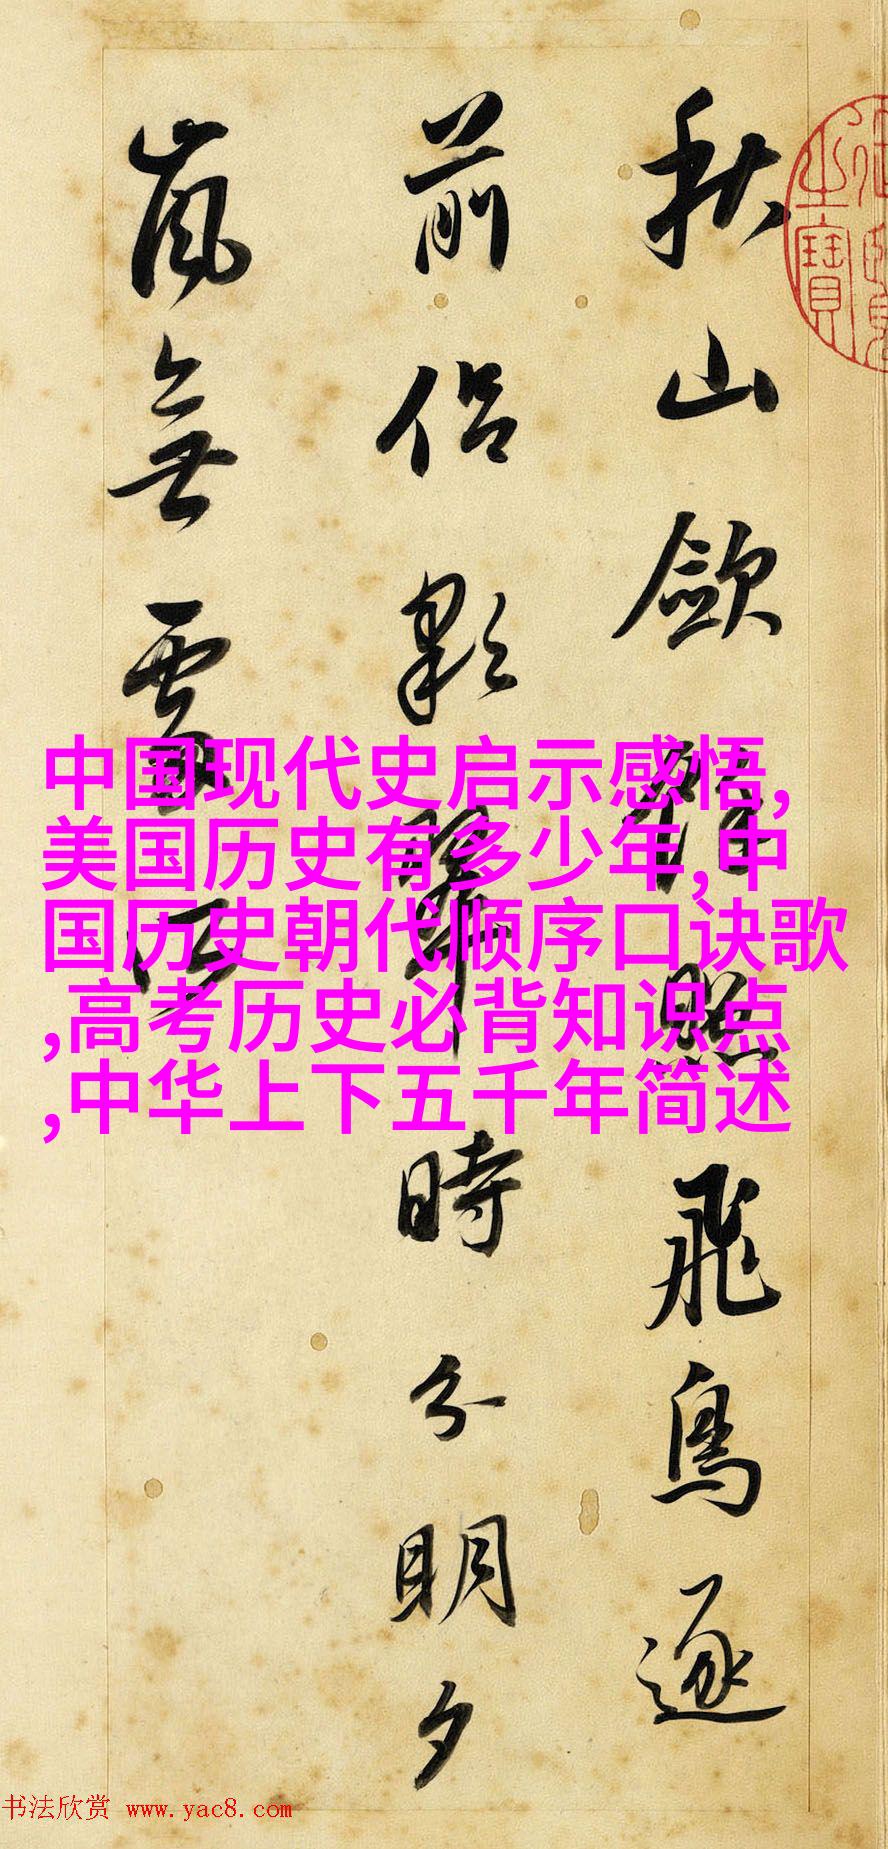 秋山斂餘照飛鳥逐
前侶彩翠時分明夕
嵐無處所
之寶
中国现代史启示感悟,
美国历史有多少年,中
国历史朝代顺序口诀歌
,高考历史必背知识点
,中华上下五千年简述
书法欣赏 www.yac8.com